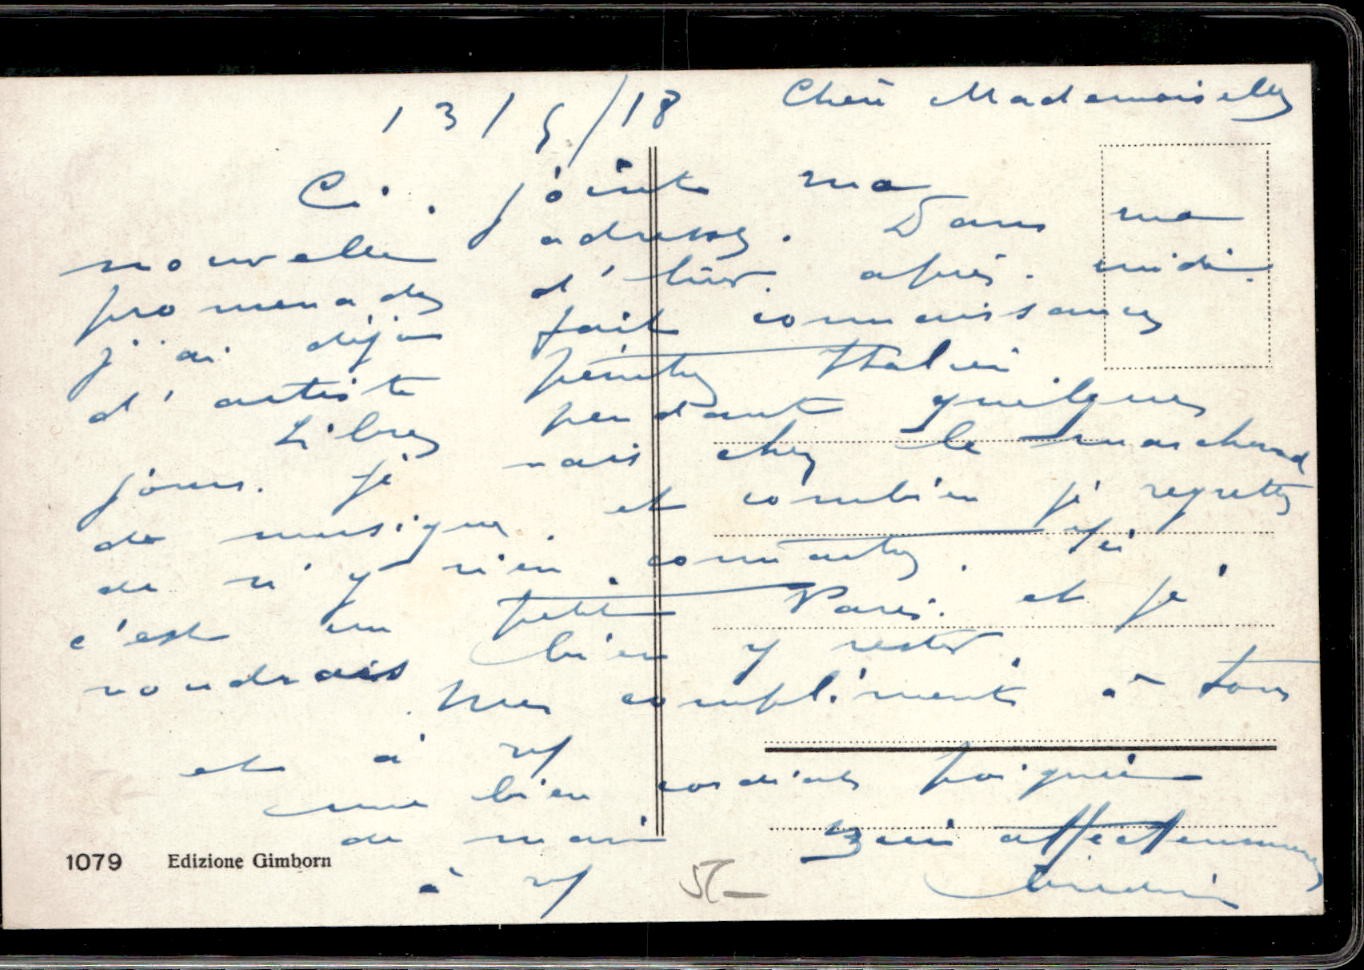 13/5/18
Chère Mademoiselle
Ci. joint ma
nouvelle adresse. Dans ma
promenade d'hier. après. midi.
j'ai déjà fait connaissance
d'artiste peintre
Libre pendant quelques
jours. je vais chez le marchand
de musique. et combien je regrette
de n'y rien connaître. Ici
c'est un petit Paris. et je
voudrais bien y rester.
Mes compliments à tous
et à
une bien cordiale poignée
de main
à
Bien affectueusement
1079 Edizione Gimborn